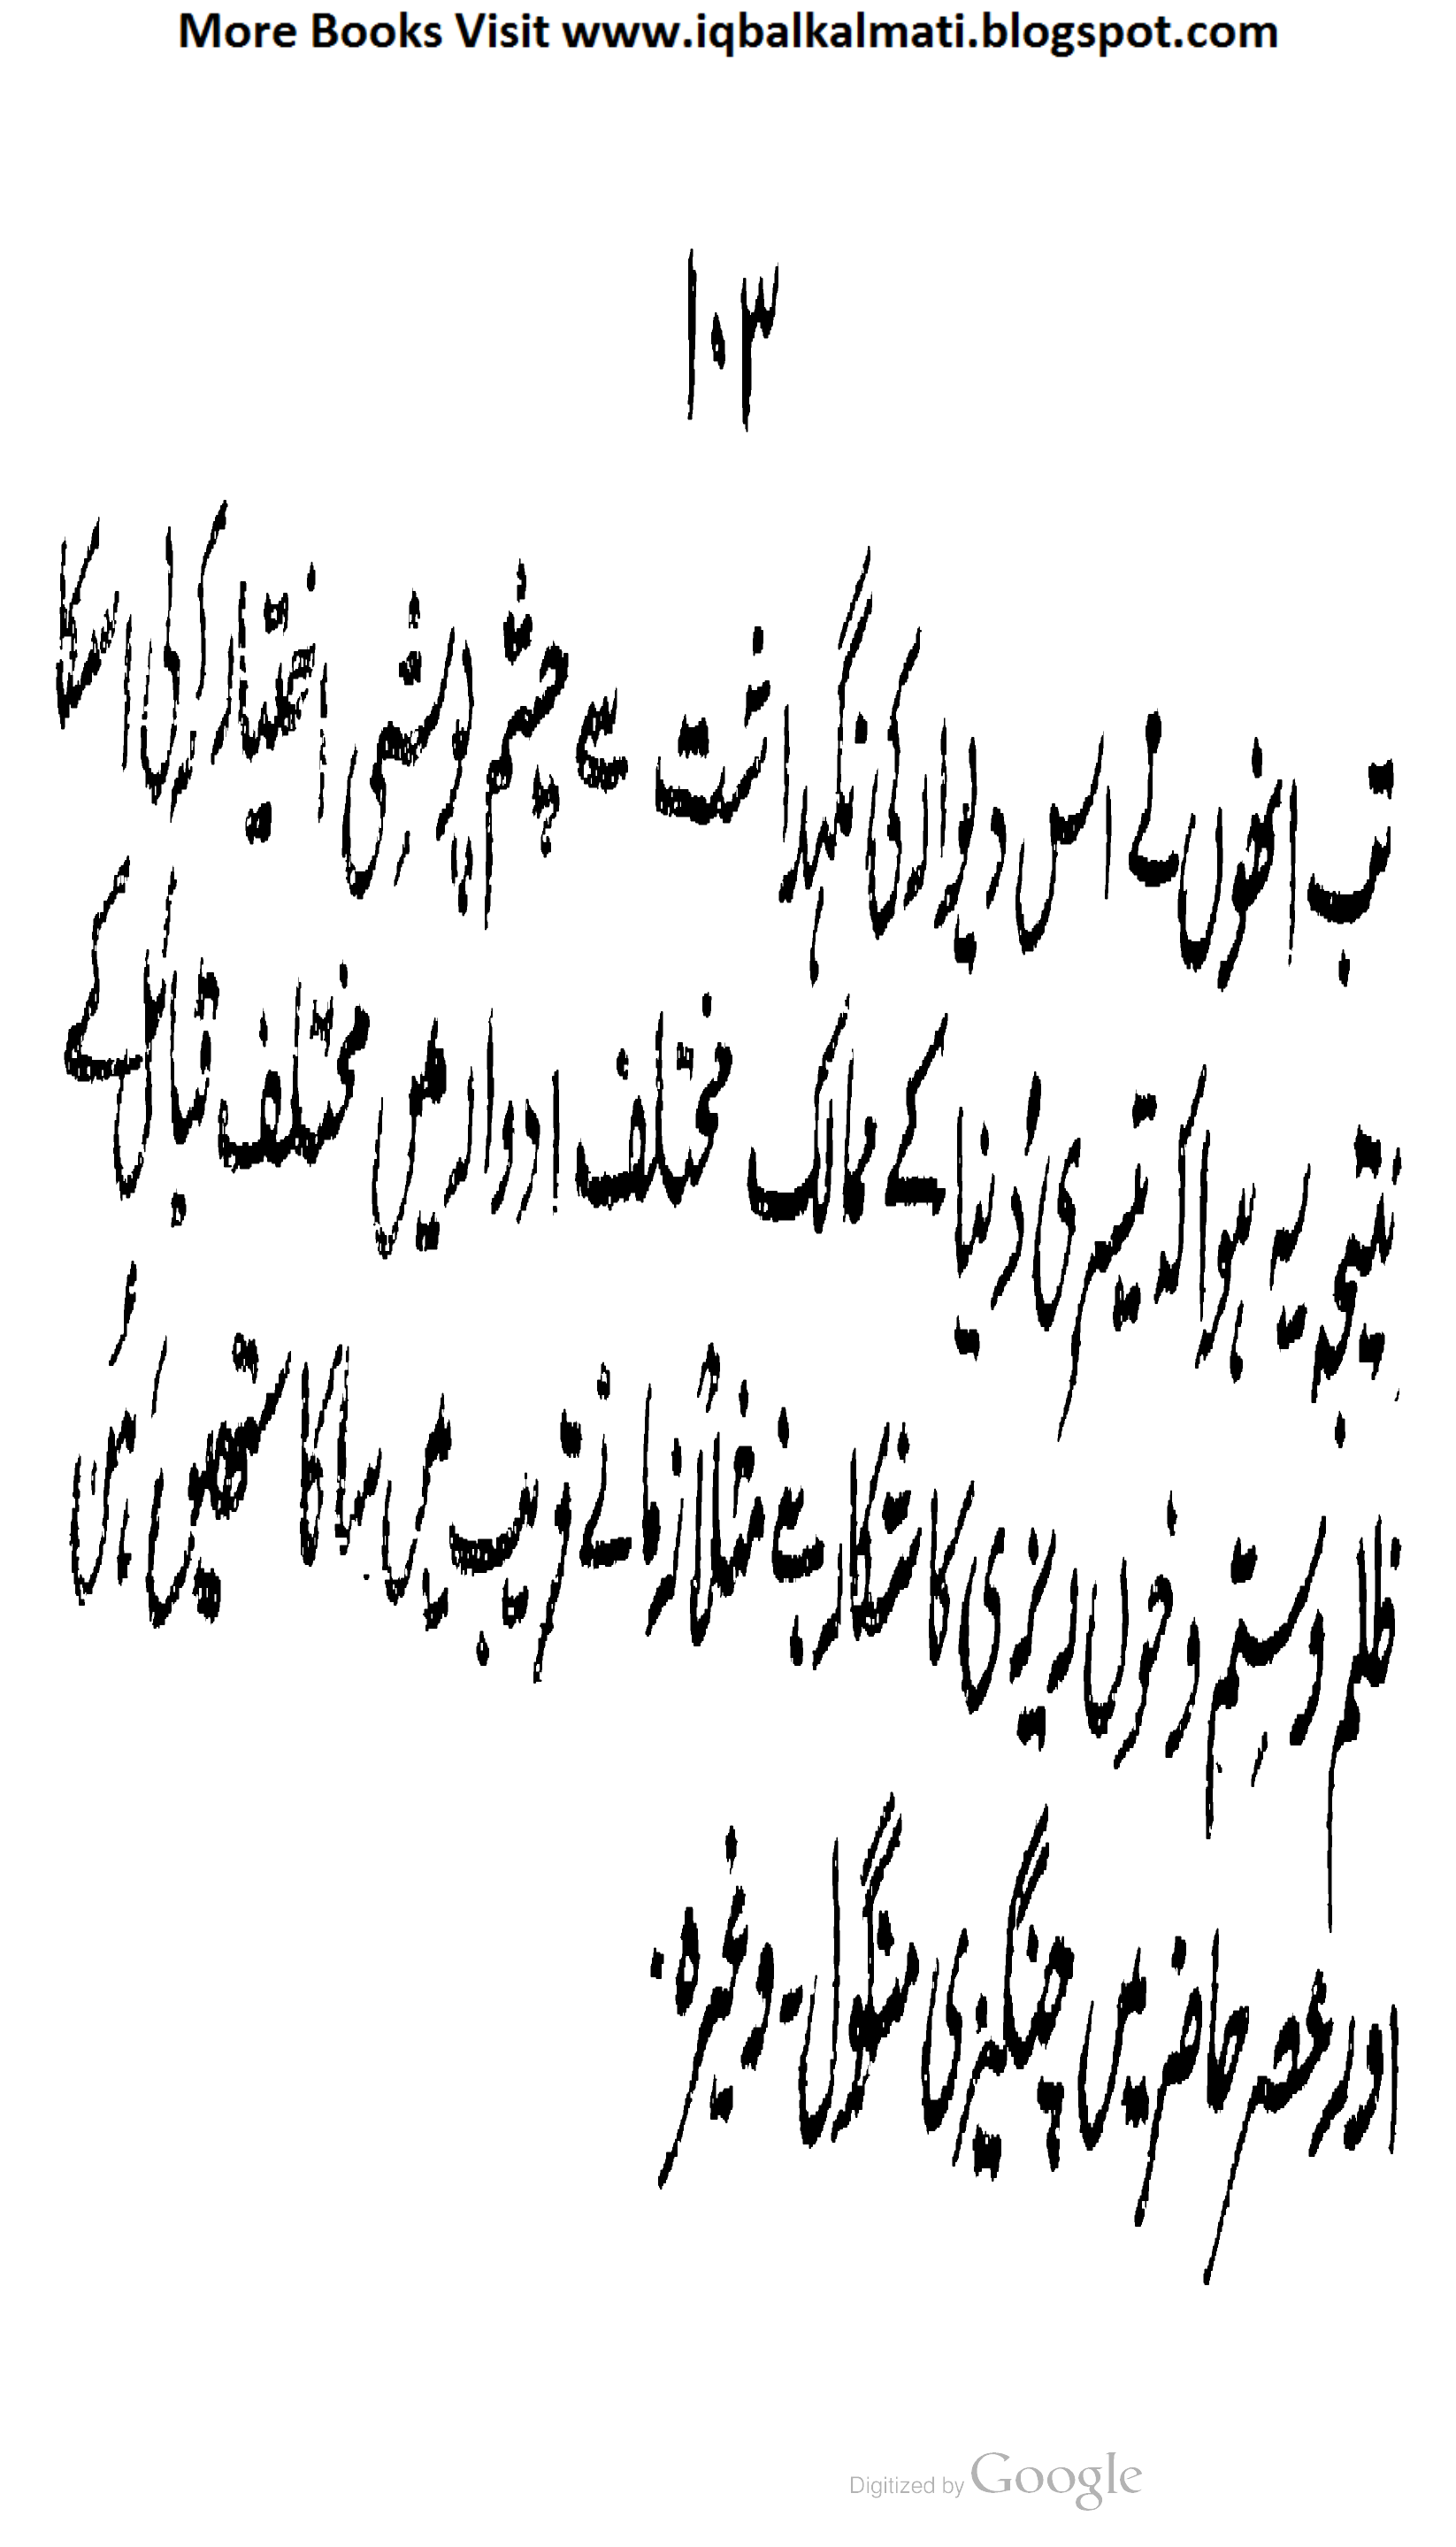 More Books Visit www.iqbalkalmati.blogspot.com
۱۰۳
تب انھوں نے اس دیوار کی نگہداشت سے چشم پوشی اختیار کر لی اس کا
نتیجہ یہ ہوا کہ تیسری دُنیا کے مالک مختلف ادوار میں مختلف قبائل کے
ظلم و ستم و خوں ریزی کا شکار بنے مثلاً زمانے قریب میں سالا کا
اور عصر حاضر میں چنگیزی منگول - وغیرہ
Digitized by Google